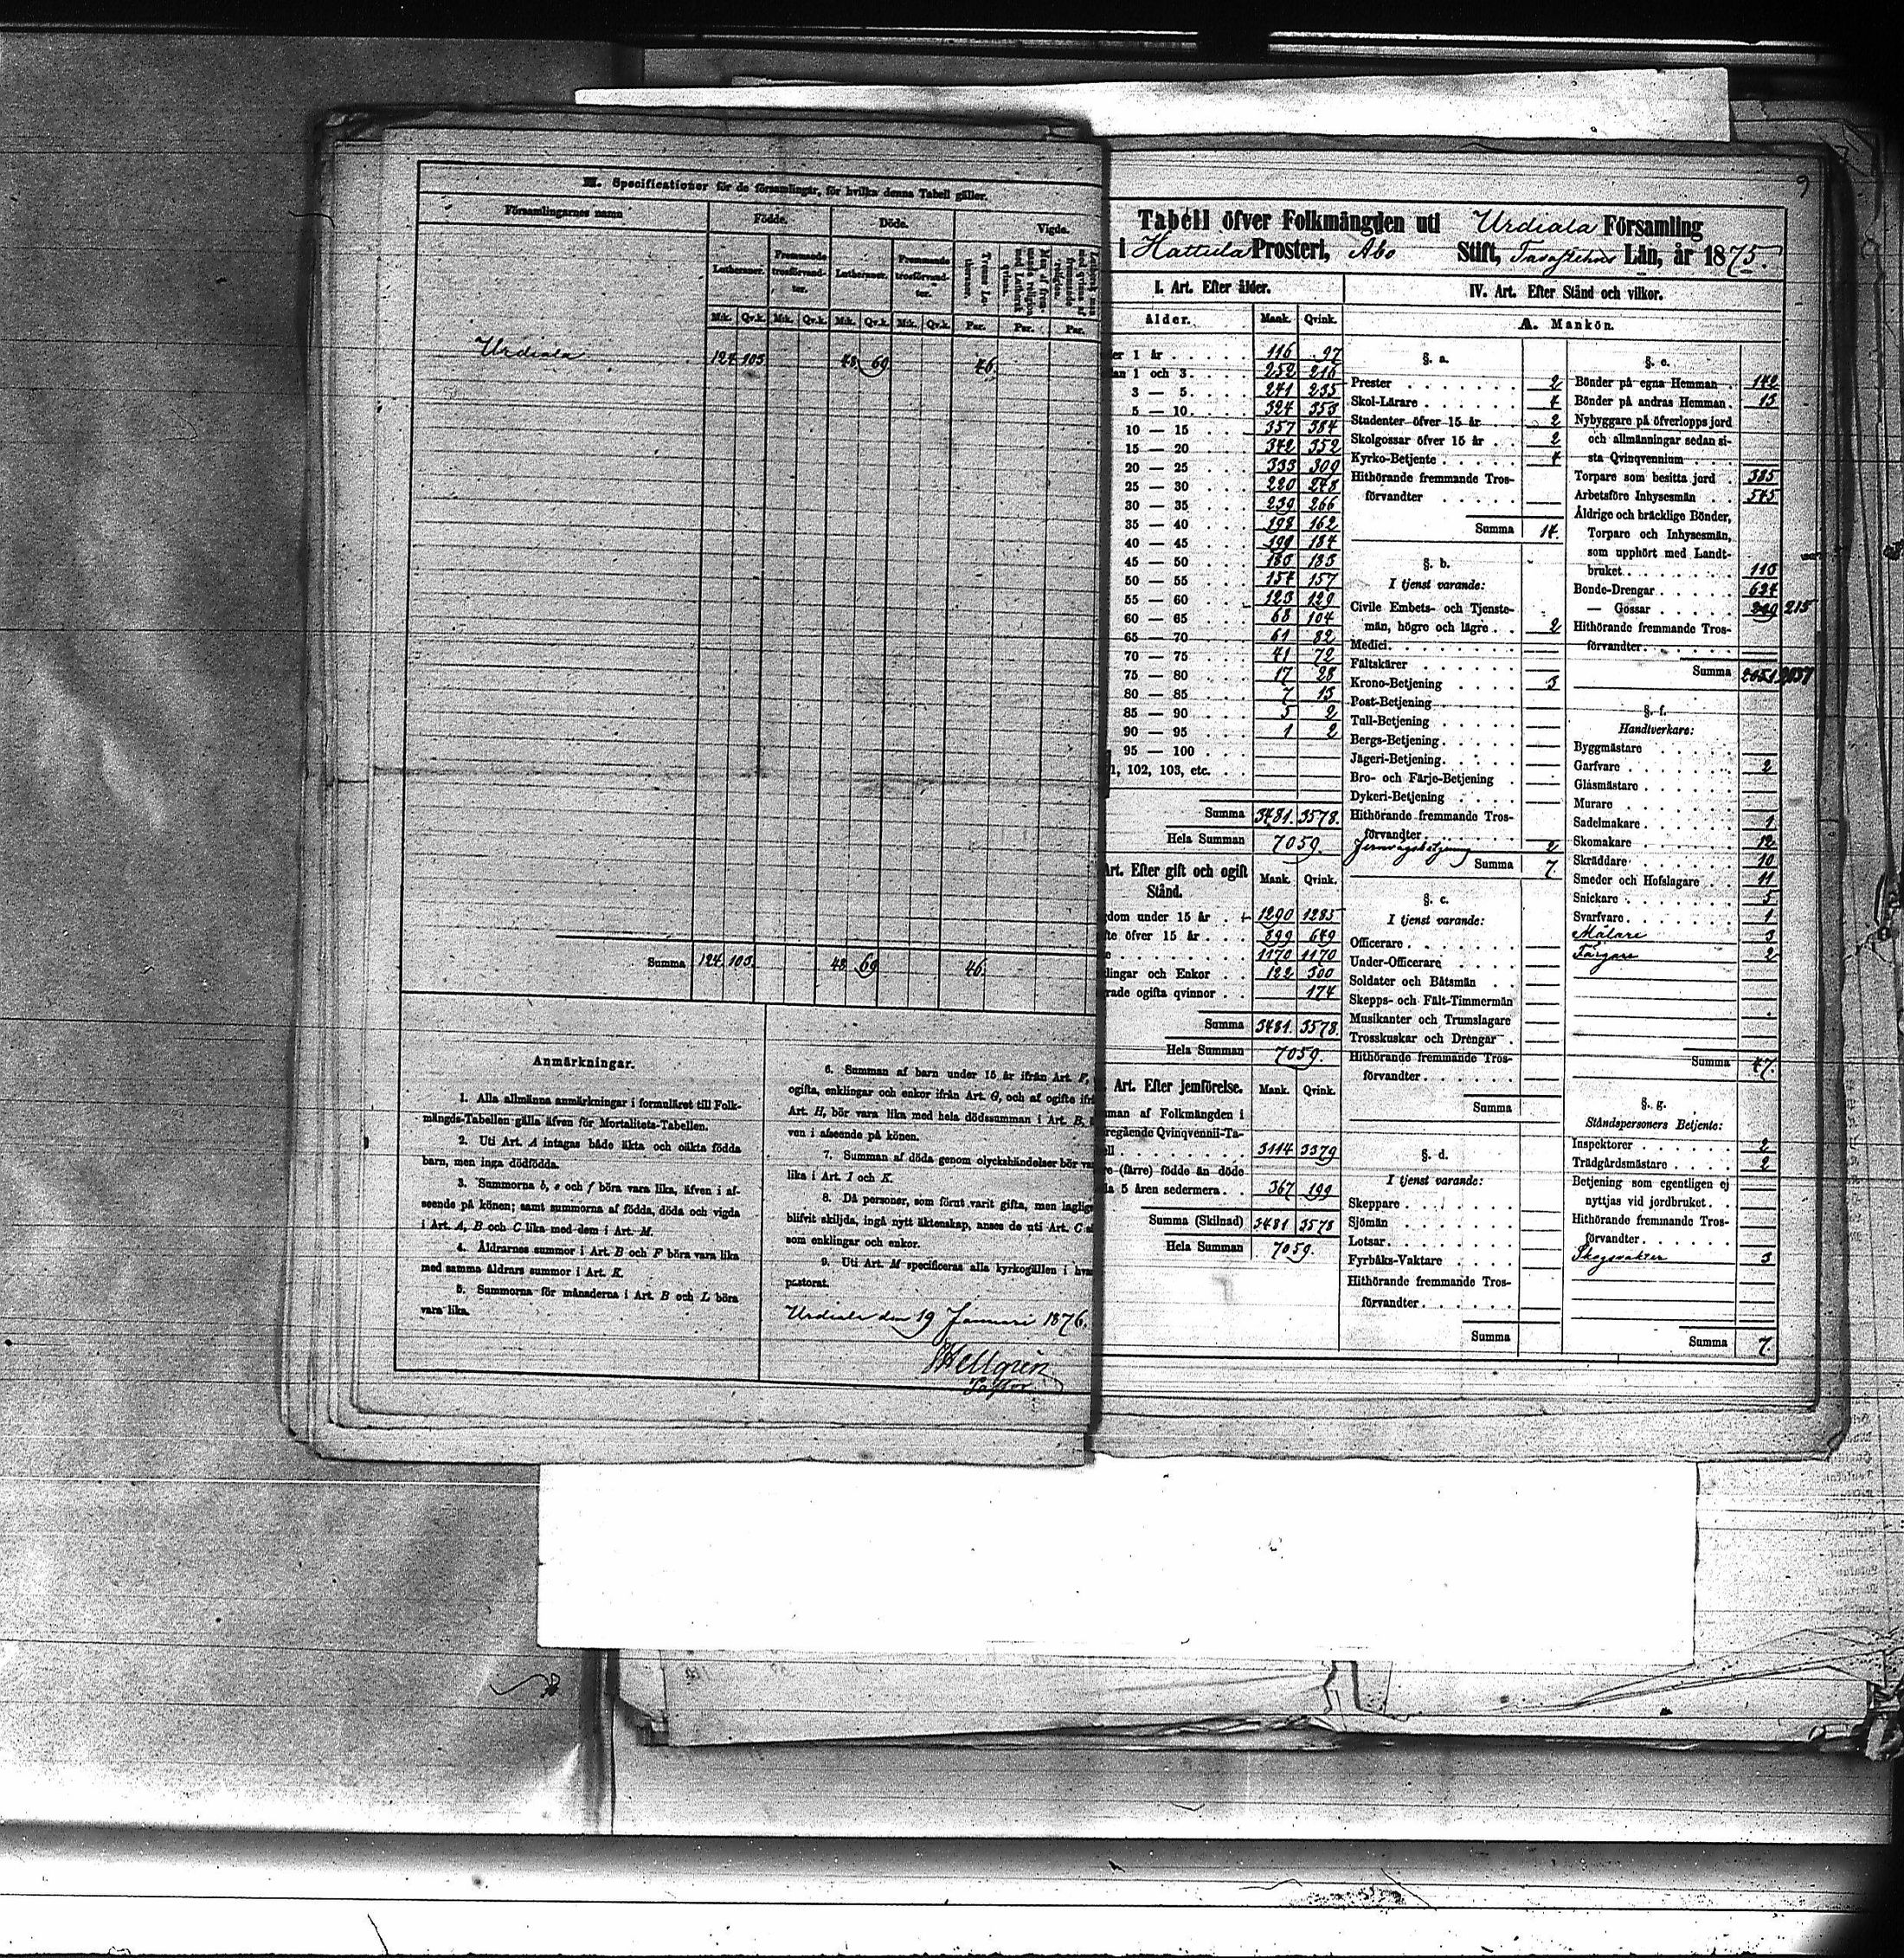 M. Specificationer för de församlingar, för hvilka denna Tabell gäller.
Församlingarnes namn
Födde.
Döde.
Vigde.
Lutheraner.
Fremmande trosförvandter.
Lutheraner.
Fremmande trosförvandter.
Mk. Qv.k. Mk. Qv.k. Mk. Qv.k. Mk. Qv.k. Par. Par. Par.
Urdiala 124 103 48 69 46.
Summa 124. 103. 48 69 46.
Anmärkningar.
1. Alla allmänna anmärkningar i formuläret till Folk-
mängds-Tabellen gälla äfven för Mortalitets-Tabellen.
2. Uti Art. A intagas både äkta och oäkta födda
barn, men inga dödfödda.
3. Summorna b, e och f böra vara lika, äfven i af-
seende på könen; samt summorna af födda, döda och vigda
i Art. A, B och C lika med dem i Art. M.
4. Åldrarnes summor i Art. B och F böra vara lika
med samma åldrars summor i Art. K.
5. Summorna för månaderna i Art. B och L böra
vara lika.
6. Summan af barn under 15 år ifrån Art. F,
ogifta, enklingar och enkor ifrån Art. G, och af ogifte ifrå
Art. H, bör vara lika med hela dödssumman i Art. B,
ven i afseende på könen.
7. Summan af döda genom olyckshändelser bör va
lika i Art. I och K.
8. Då personer, som förut varit gifta, men laglig
blifvit skiljda, ingå nytt äktenskap, anses de uti Art. C
som enklingar och enkor.
9. Uti Art. M specificeras alla kyrkogällen i hva
pastorat.
Urdiala den 19 Januari 1876.
Hellgrén
Pastor
9
Tabell öfver Folkmängden uti Urdiala Församling
i Hattula Prosteri, Abo Stift, Tavastehus Län, år 1875.
I. Art. Efter ålder.
ålder. Mank. Qvink.
er 1 år 116 97
an 1 och 3 252 216
3 — 5 241 235
5 — 10 324 353
10 — 15 357 384
15 — 20 342 352
20 — 25 333 309
25 — 30 220 248
30 — 35 239 266
35 — 40 198 162
40 — 45 199 184
45 — 50 183 183
50 — 55 154 157
55 — 60 123 129
60 — 65 68 104
65 — 70 61 82
70 — 75 41 72
75 — 80 17 28
80 — 85 7 13
85 — 90 5 2
90 — 95 1 2
95 — 100
1, 102, 103, etc.
Summa 3481. 3578.
Hela Summan 7059.
Art. Efter gift och ogift
Stånd. Mank. Qvink.
dom under 15 år 1290 1285
fte öfver 15 år 899 649
1170 1170
lingar och Enkor 122 300
rade ogifta qvinnor 174
Summa 3481. 3578.
Hela Summan 7059.
Art. Efter jemförelse. Mank. Qvink.
man af Folkmängden i
regående Qvinqvennii-Ta-
ell 3114 3379
re (färre) födde än döde
da 5 åren sedermera 367 199
Summa (Skilnad) 3481 3578
Hela Summan 7059.
IV. Art. Efter Stånd och vilkor.
A. Mankön.
§. a.
Prester 2
Skol-Lärare 4
Studenter öfver 15 år 2
Skolgossar öfver 15 år 2
Kyrko-Betjente 4
Hithörande fremmande Tros-
förvandter
Summa 14.
§. b.
I tjenst varande:
Civile Embets- och Tjenste-
män, högre och lägre 2
Medici
Fältskärer
Krono-Betjening 3
Post-Betjening
Tull-Betjening
Bergs-Betjening
Jägeri-Betjening
Bro- och Färje-Betjening
Dykeri-Betjening
Hithörande fremmande Tros-
förvandter
Jernvägsbetjening 2
Summa 7.
§. c.
I tjenst varande:
Officerare
Under-Officerare
Soldater och Båtsmän
Skepps- och Fält-Timmermän
Musikanter och Trumslagare
Trosskuskar och Drengar
Hithörande fremmande Tros-
förvandter
Summa
§. d.
I tjenst varande:
Skeppare
Sjömän
Lotsar
Fyrbåks-Vaktare
Hithörande fremmande Tros-
förvandter
Summa
§. e.
Bönder på egna Hemman 142
Bönder på andras Hemman 13
Nybyggare på öfverlopps jord
och allmänningar sedan si-
sta Qvinqvennium
Torpare som besitta jord 385
Arbetsföre Inhysesmän 545
Åldrige och bräcklige Bönder,
Torpare och Inhysesmän,
som upphört med Landt-
bruket 113
Bonde-Drengar 624
— Gossar 215
Hithörande fremmande Tros-
förvandter
Summa 2051 2037
§. f.
Handtverkare:
Byggmästare
Garfvare 2
Glasmästare
Murare
Sadelmakare 1
Skomakare 12
Skräddare 10
Smeder och Hofslagare 11
Snickare 5
Svarfvare 1
Målare 3
Färgare 2
Summa 47.
§. g.
Ståndspersoners Betjente:
Inspektorer 2
Trädgårdsmästare 2
Betjening som egentligen ej
nyttjas vid jordbruket
Hithörande fremmande Tros-
förvandter
Skogsvakter 3
Summa 7.